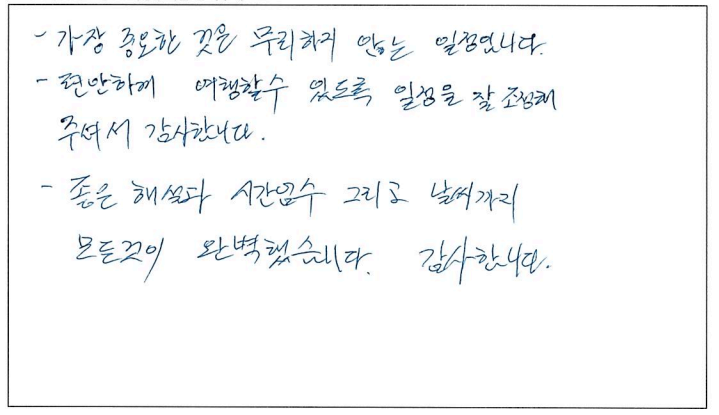 - 가장 중요한 것은 무리하지 않는 일정입니다.
- 편안하게 여행할수 있도록 일정을 잘 조정해
주셔서 감사합니다.
- 좋은 해설과 시간엄수 그리고 날씨까지
모든것이 완벽했습니다. 감사합니다.